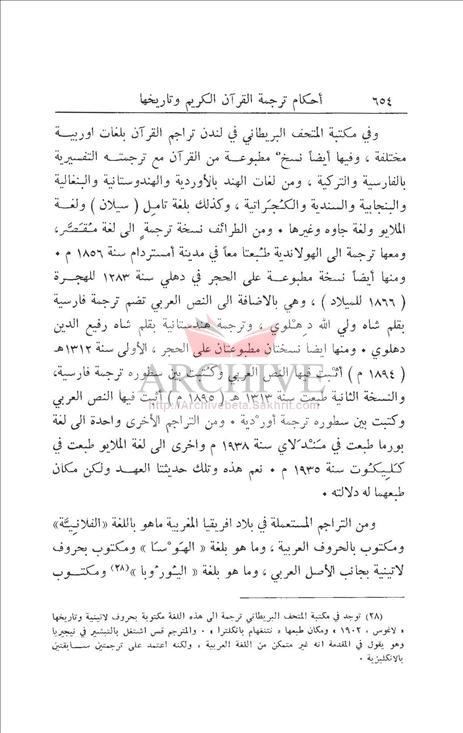 ٦٥٤ أحكام ترجمة القرآن الكريم وتاريخها
وفي مكتبة المتحف البريطاني في لندن تراجم القرآن بلغات اوربية
مختلفة ، وفيها أيضاً نسخ مطبوعة من القرآن مع ترجمته التفسيرية
بالفارسية والتركية ، ومن لغات الهند بالأوردية والهندوستانية والبنغالية
والبنجابية والسندية والكجراتية ، وكذلك بلغة تاميل ( سيلان ) ولغة
الملايو ولغة جاوه وغيرها • ومن الطرائف نسخة ترجمةٍ الى لغة
ومعها ترجمة الى الهولاندية طبعتا معاً في مدينة أمستردام سنة ١٨٥٦ م •
ومنها أيضاً نسخة مطبوعة على الحجر في دهلي سنة ١٢٨٣ للهجرة
( ١٨٦٦ للميلاد ) ، وهي بالاضافة الى النص العربي تضم ترجمة فارسية
بقلم شاه ولي الله دهلوي ، وترجمة هندستانية بقلم شاه رفيع الدين
دهلوي • ومنها ايضا نسختان مطبوعتان على الحجر ، الأولى سنة ١٣١٢هـ
( ١٨٩٤ م ) أثبت فيها النص العربي وكتبت بين سطوره ترجمة فارسية،
والنسخة الثانية طبعت سنة ١٣١٣ هـ ( ١٨٩٥ م ) أثبت فيها النص العربي
وكتبت بين سطوره ترجمة أوردية • ومن التراجم الأخرى واحدة الى لغة
بورما طبعت في مندلاي سنة ١٩٣٨ م واخرى الى لغة الملايو طبعت في
كليكوت سنة ١٩٣٥ م • نعم هذه وتلك حديثتا العهد ولكن مكان
طبعهما له دلالته •
ومن التراجم المستعملة في بلاد افريقيا المغربية ماهو باللغة «الفلانية»
ومكتوب بالحروف العربية ، وما هو بلغة « الهوسا » ومكتوب بحروف
لاتينية بجانب الأصل العربي ، وما هو بلغة « اليوروبا »(٢٨) ومكتوب
(٢٨) توجد في مكتبة المتحف البريطاني ترجمة الى هذه اللغة مكتوبة بحروف لاتينية وتاريخها
« لاغوس ، ١٩٠٢ » ومكان طبعها « نتنغهام بانكلترا » • والمترجم قس اشتغل بالتبشير في نيجيريا
وهو يقول في المقدمة انه غير متمكن من اللغة العربية ، ولكنه اعتمد على ترجمتين سابقتين
بالانكليزية •
ARCHIVE
http://Archivebeta.Sakhrit.com